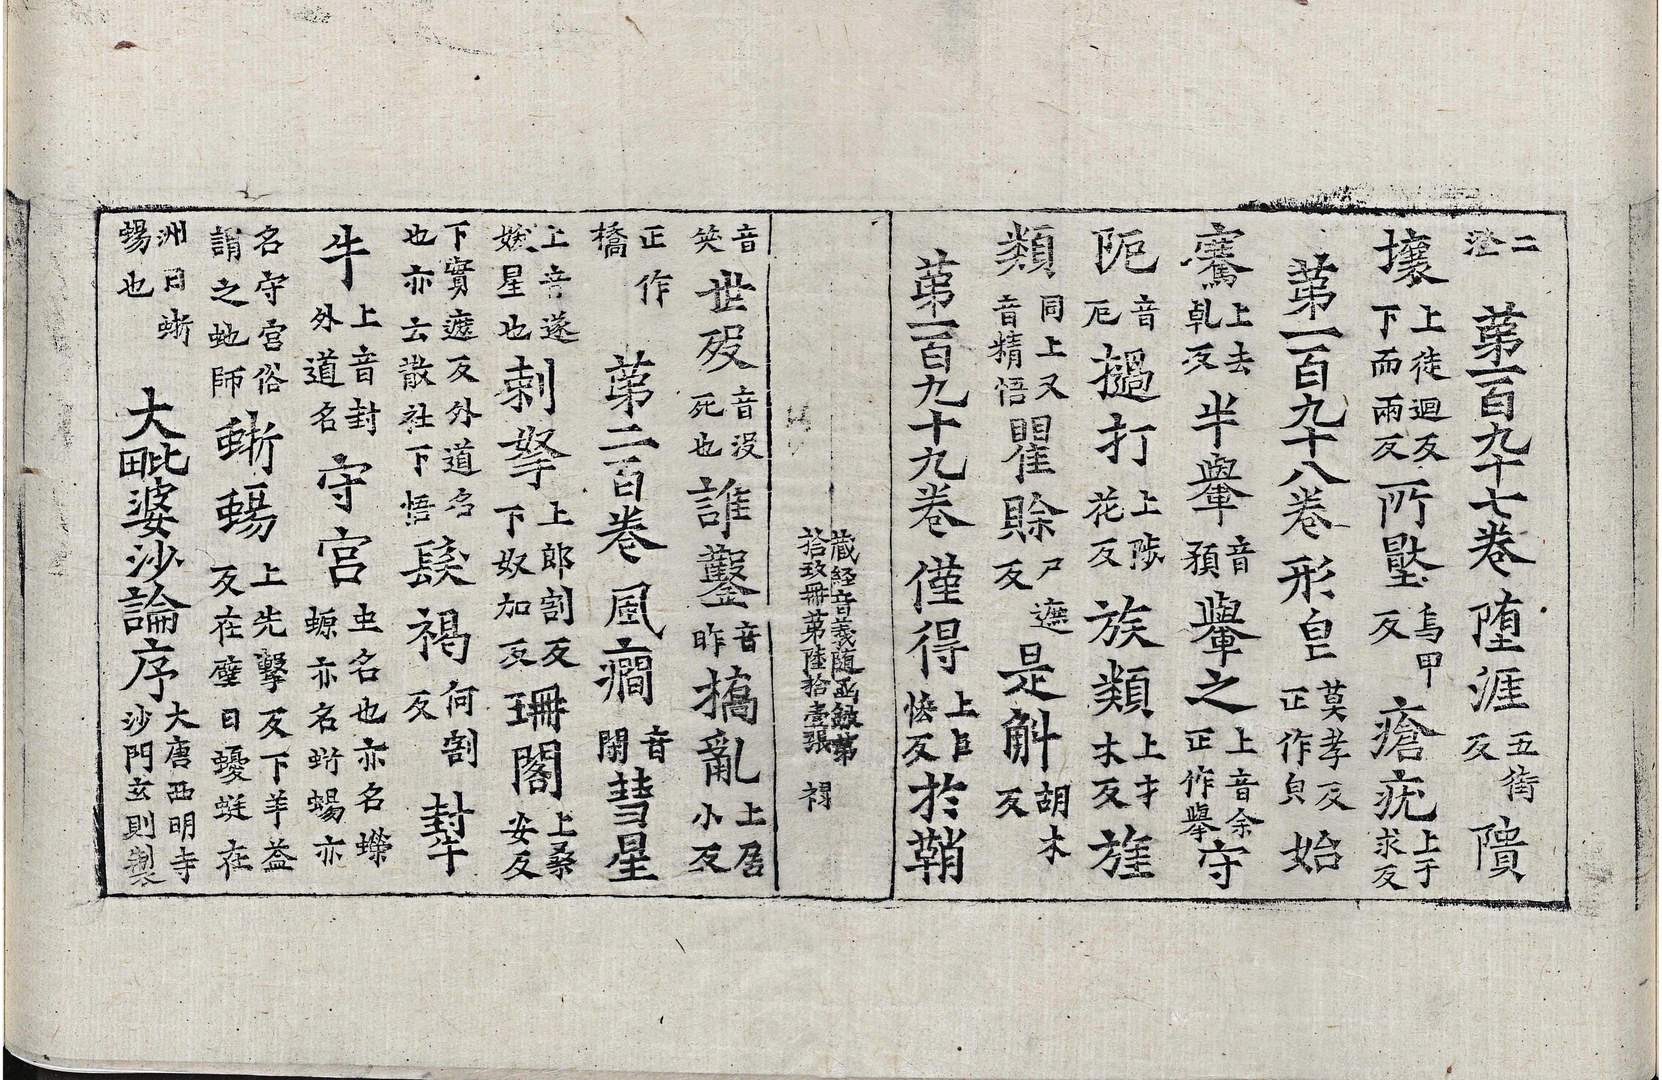 二澄　第一百九十七卷　堕涯五街反　隤
壞上徒迴反下而兩反　所壓烏甲反　瘡疣上于求反
第一百九十八卷　形皃莫孝反正作皃　始
騫上去乹反　半轝音預　轝之上音余正作轝　守
阨音厄　撾打上陟花反　族類上才木反　旌
類同上又音精悟　瞿賖尸遮反　是斛胡木反
第一百九十九卷　僅得上巨悋反　於鞘
藏経音義随函録第
拾玖冊第陸拾壹張　禍
音笑　世歿音没死也　誰鑿音昨　撟亂上居小反
正作橋　第二百卷　風癇音閑　彗星
上音遂妖星也　剌拏上郎割反下奴加反　珊閣上桑安反
下實遮反外道名也亦云散社下悟　髮褐何割反　封牛
牛上音封外道名　守宮虫名也亦名蠑螈亦名蜥蜴亦
名守宮俗謂之虵師　蜥蜴上先擊反下羊益反在壁曰蝘蜓在
洲曰蜥蜴也　大毗婆沙論序大唐西明寺沙門玄則製